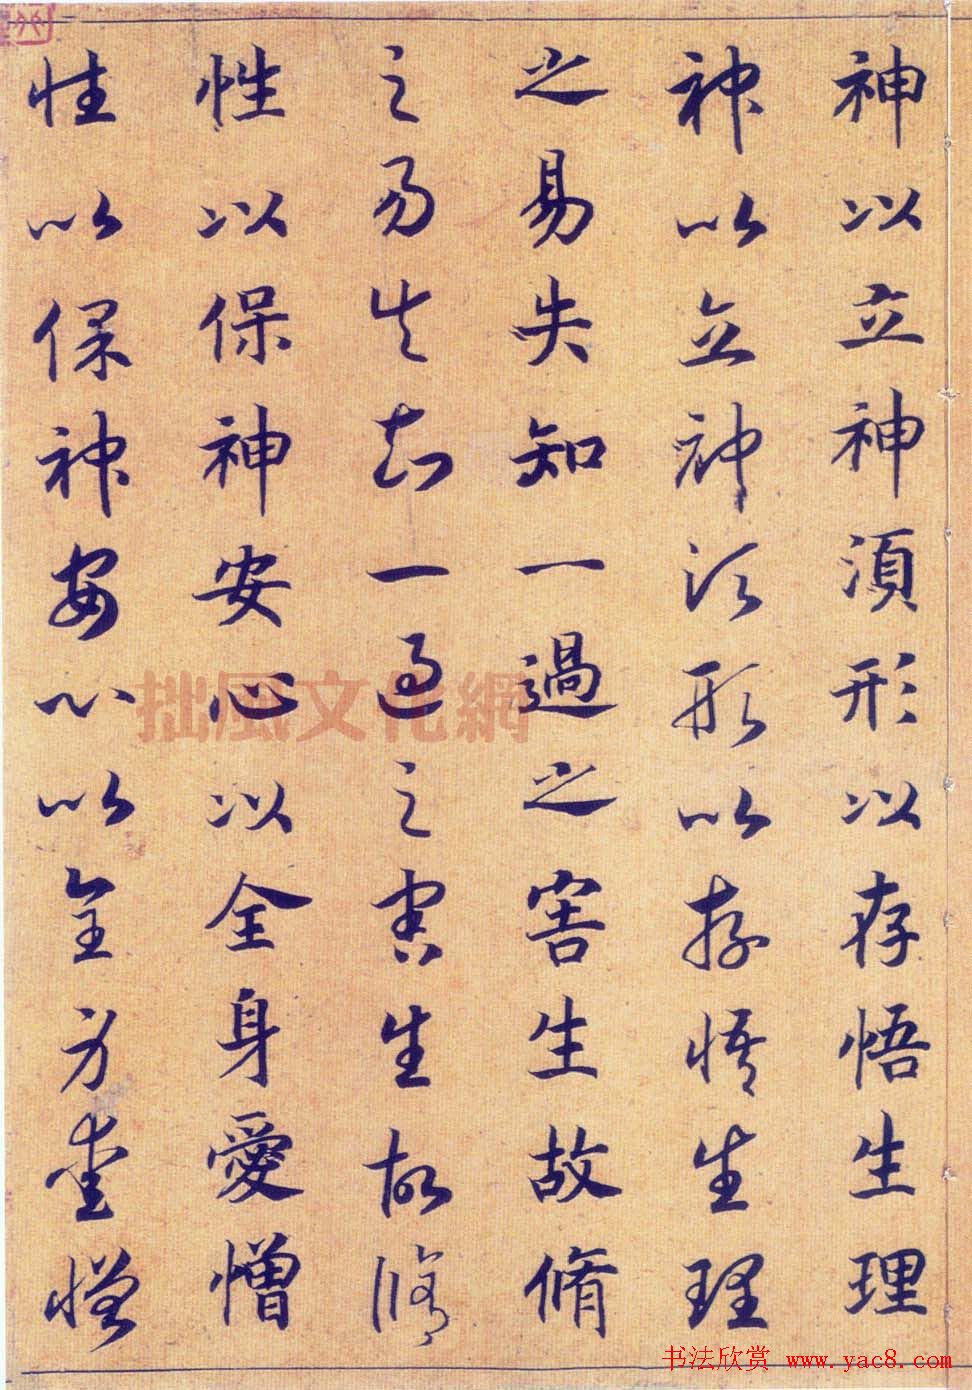 神以立神須形以存悟生理
神以立神須形以存悟生理
之易失知一過之害生故脩
之易失知一過之害生故脩
性以保神安心以全身愛憎
性以保神安心以全身愛憎
拙風文化網
书法欣赏 www.yac8.com